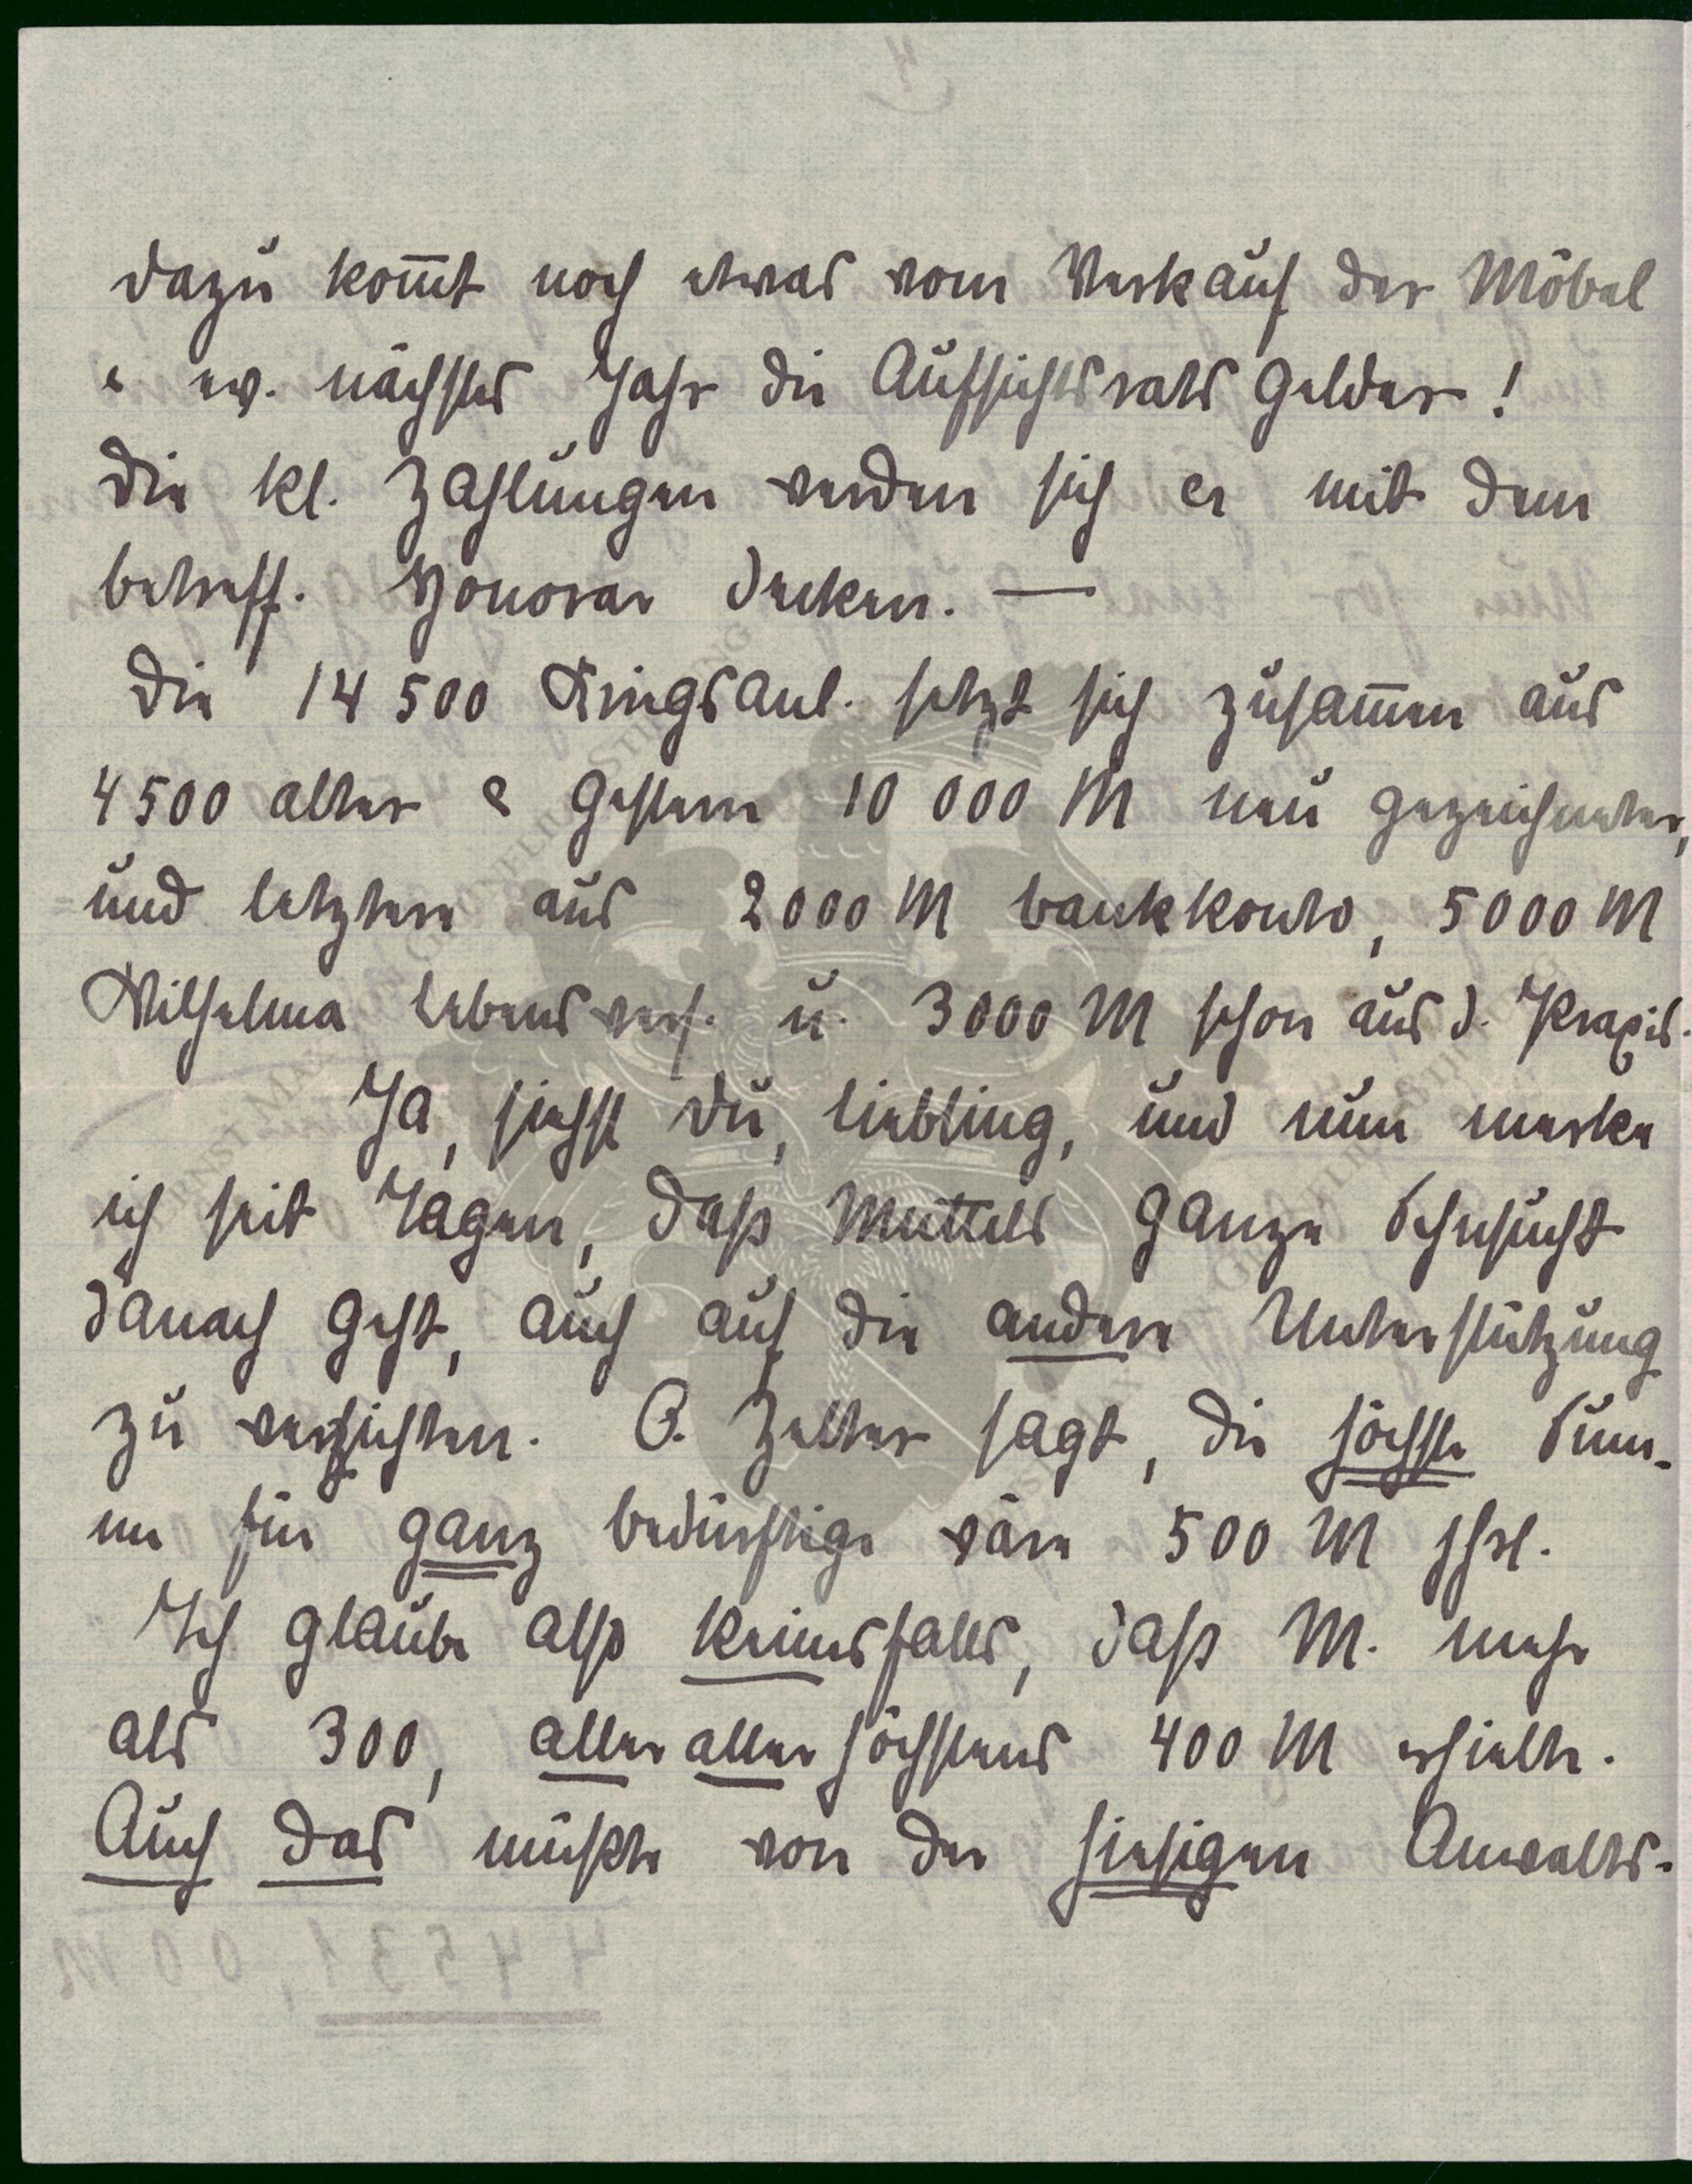 dazu kom̅t noch etwas vom Verkauf der Möbel
& ev. nächstes Jahr die Aufsichtsrats Gelder!
Die kl. Zahlungen werden sich er mit dem
betreff. Honorar decken. —
Die 14 500 KriegsAnl. setzt sich zusam̅en aus
4500 alter & gestern 10 000 M neu gezeichneter,
und letztere aus 2000 M bankkonto, 5000 M
Wilhelma Lebensvers. u. 3000 M schon aus d. Praxis.
Ja, siehst du, liebling, und nun merke
ich seit Tagen, daß Muttels ganze Sehnsucht
danach geht, auch auf die andere Unterstützung
zu verzichten. O. Zelter sagt, die höchste Sum-
me für ganz bedürftige wäre 500 M jhrl.
Ich glaube also keinesfalls, daß M. mehr
als 300, aller aller höchstens 400 M erhielte.
Auch das müßte von der hiesigen Anwalts-